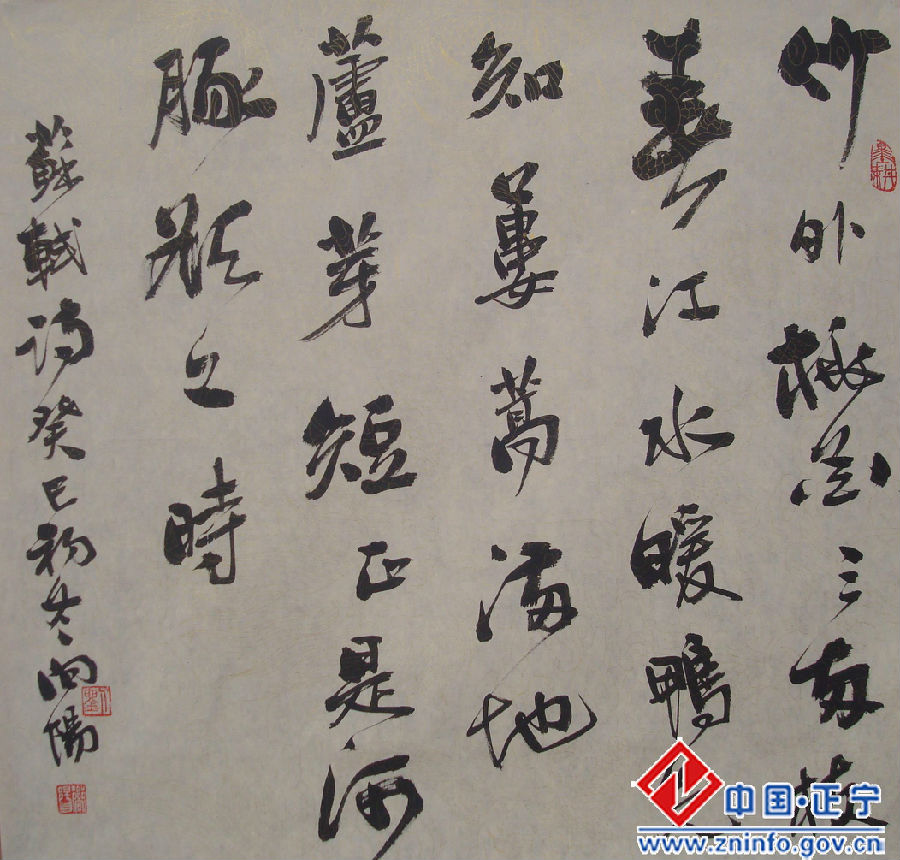 竹外桃花三兩枝
春江水暖鴨先
知蔞蒿滿地
蘆芽短正是河
豚欲上時
蘇軾詩癸巳初冬向陽
中国·正宁
www.zninfo.gov.cn